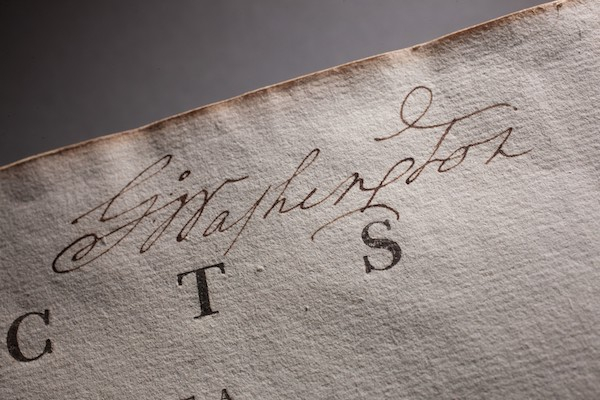 G:Washington
C T S
A